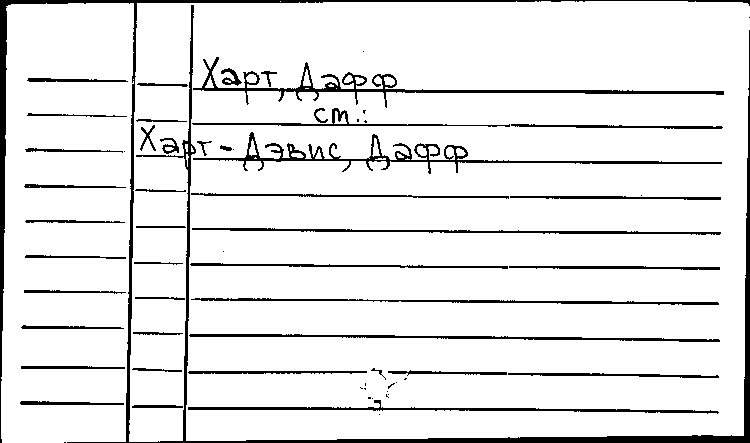 Харт, Дафф
см.:
Харт-Дэвис, Дафф